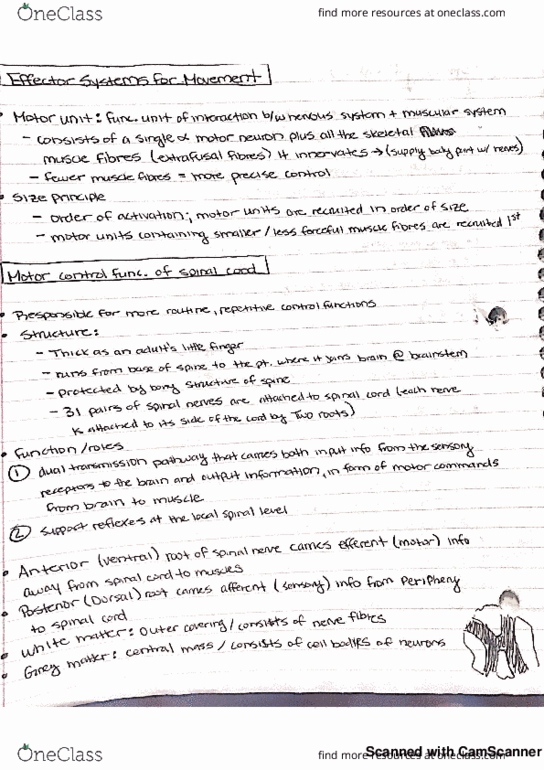 OneClass
find more resources at oneclass.com
Effector Systems for Movement
• Motor unit: func. unit of interaction b/w nervous system + muscular system
- consists of a single α motor neuron plus all the skeletal
muscle fibres (extrafusal fibres) it innervates → (supply body part w/ nerves)
- fewer muscle fibres = more precise control
• Size principle
- order of activation; motor units are recruited in order of size
- motor units containing smaller / less forceful muscle fibres are recruited 1st
Motor control func. of spinal cord
• Responsible for more routine, repetitive control functions
• Structure:
- Thick as an adult's little finger
- runs from base of spine to the pt. where it joins brain @ brainstem
- protected by bony structure of spine
- 31 pairs of spinal nerves are attached to spinal cord (each nerve
is attached to its side of the cord by Two roots)
• Function / roles
① dual transmission pathway that carries both input info from the sensory
receptors to the brain and output information, in form of motor commands
from brain to muscle
② support reflexes at the local spinal level
• Anterior (ventral) root of spinal nerve carries efferent (motor) info
away from spinal cord to muscles
• Posterior (Dorsal) root carries afferent (sensory) info from Periphery
to spinal cord
• White matter: Outer covering / consists of nerve fibres
• Grey matter: central mass / consists of cell bodies of neurons
OneClass
find more resources at oneclass.com
Scanned with CamScanner